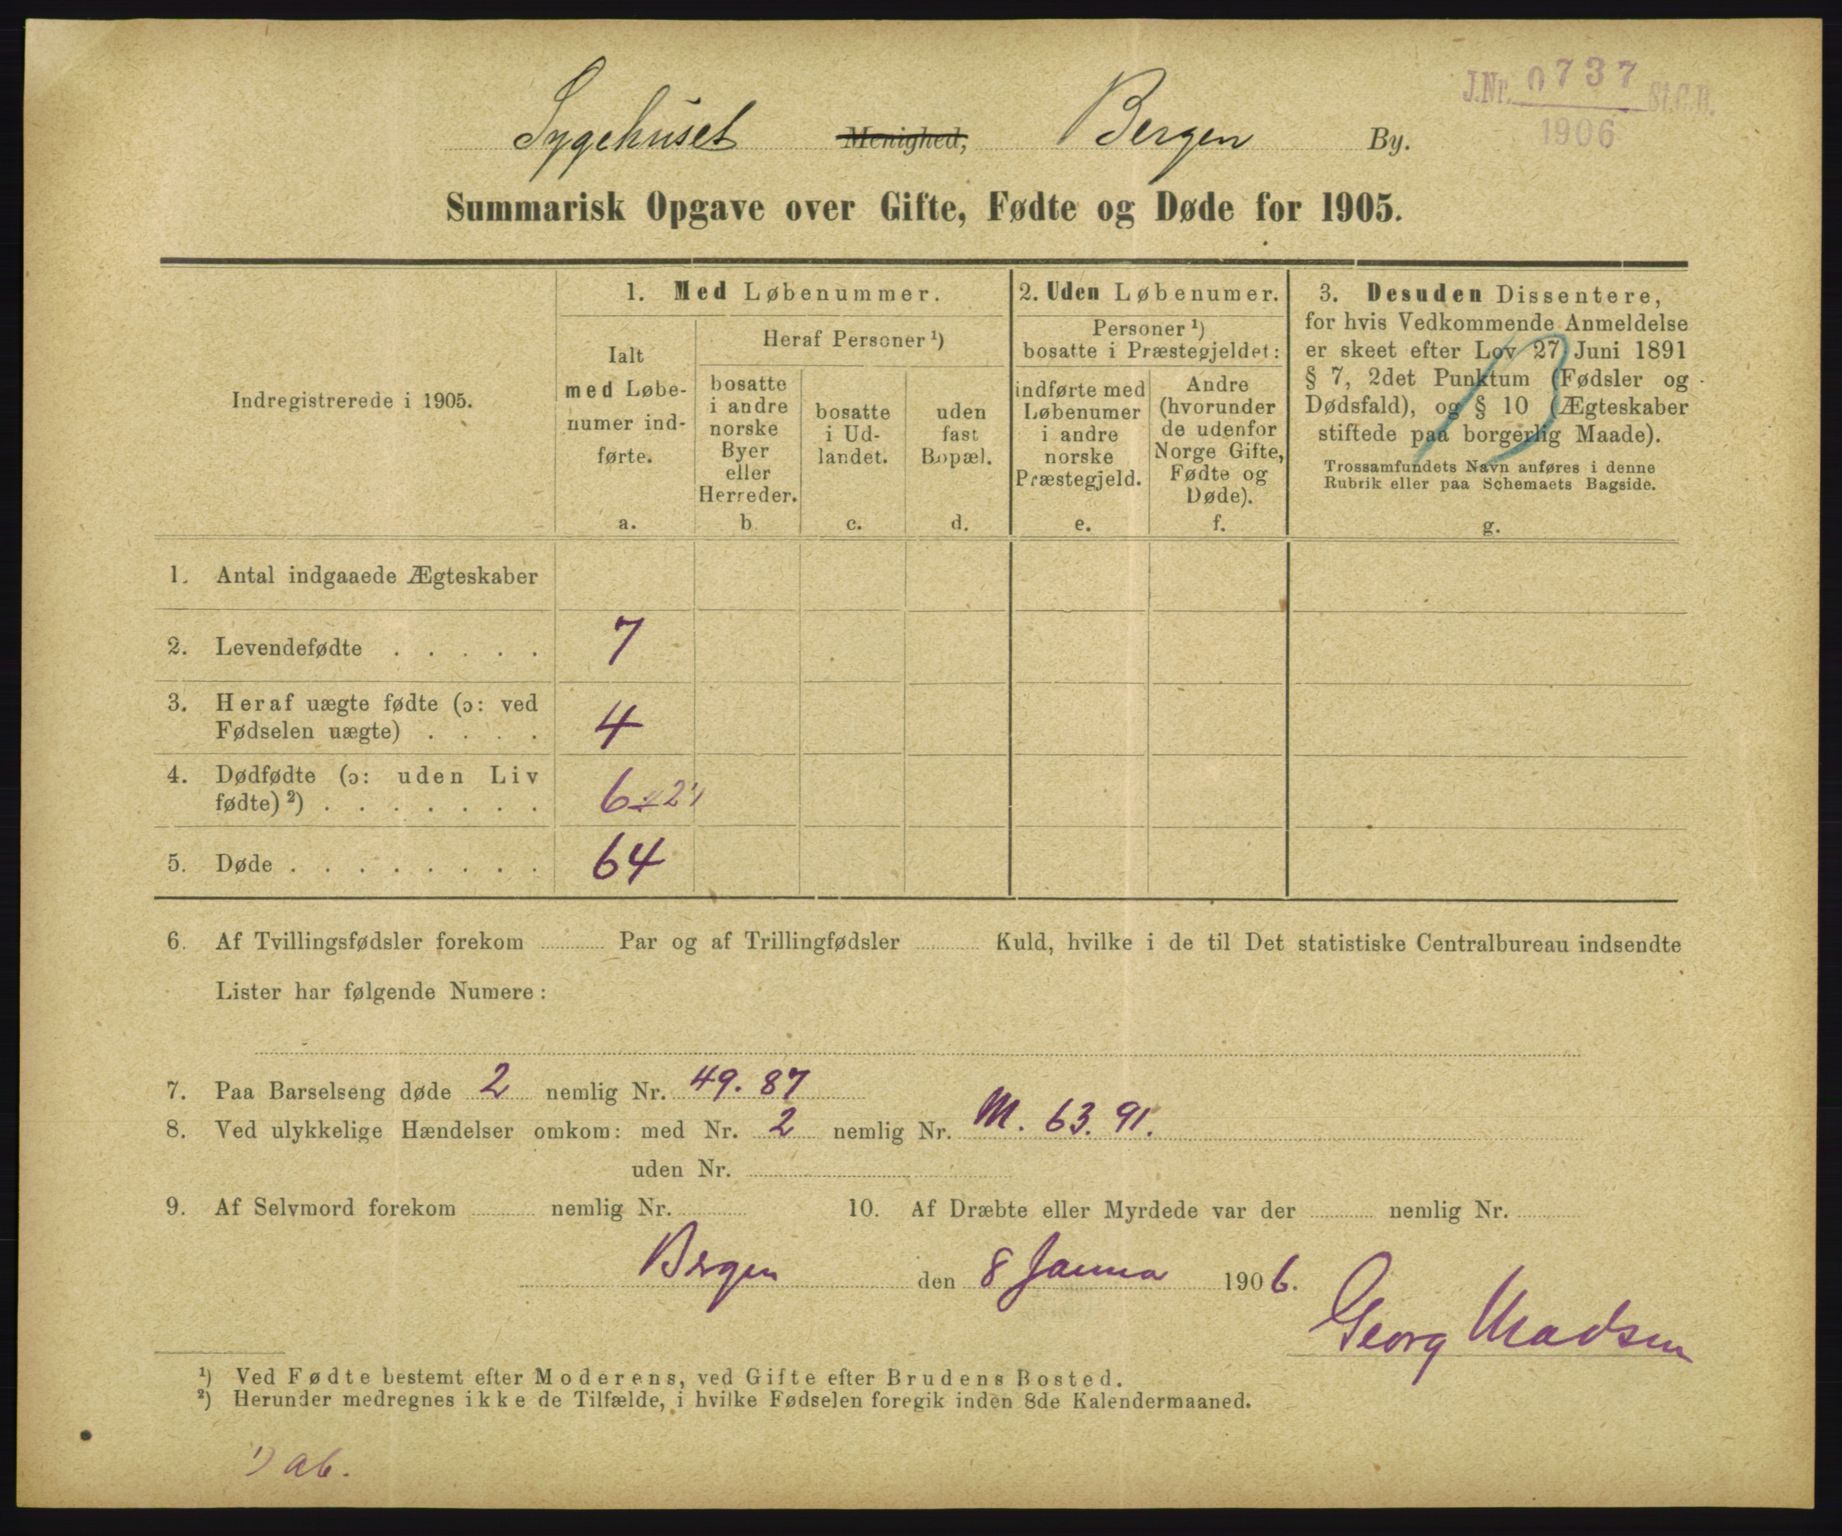 J.Nr. 0737 St.C.B.
1906
Sygehuset Menighed, Bergen By.
Summarisk Opgave over Gifte, Fødte og Døde for 1905.
Indregistrerede i 1905.
1. Med Løbenummer.
Ialt
med Løbe-
numer ind-
førte.
a.
Heraf Personer ¹)
bosatte
i andre
norske
Byer
eller
Herreder.
b
bosatte
i Ud-
landet.
c.
uden
fast
Bopæl.
d.
2. Uden Løbenumer.
Personer ¹)
bosatte i Præstegjeldet:
indførte med
Løbenumer
i andre
norske
Præstegjeld.
e.
Andre
(hvorunder
de udenfor
Norge Gifte,
Fødte og
Døde).
f.
3. Desuden Dissentere,
for hvis Vedkommende Anmeldelse
er skeet efter Lov 27 Juni 1891
§ 7, 2det Punktum (Fødsler og
Dødsfald), og § 10 (Ægteskaber
stiftede paa borgerlig Maade).
Trossamfundets Navn anføres i denne
Rubrik eller paa Schemaets Bagside.
g.
13
1. Antal indgaaede Ægteskaber
2. Levendefødte . . . . . 7
3. Heraf uægte fødte (ɔ: ved
Fødselen uægte) . . . . 4
4. Dødfødte (ɔ: uden Liv
fødte) ²) . . . . . . . 6
5. Døde . . . . . . . . 64
6. Af Tvillingsfødsler forekom Par og af Trillingfødsler Kuld, hvilke i de til Det statistiske Centralbureau indsendte
Lister har følgende Numere:
7. Paa Barselseng døde 2 nemlig Nr. 49. 87
8. Ved ulykkelige Hændelser omkom: med Nr. 2 nemlig Nr. M. 63. 91.
uden Nr.
9. Af Selvmord forekom nemlig Nr. 10. Af Dræbte eller Myrdede var der nemlig Nr.
Bergen den 8 Janua 1906.
Georg Madsen
¹) Ved Fødte bestemt efter Moderens, ved Gifte efter Brudens Bosted.
²) Herunder medregnes ikke de Tilfælde, i hvilke Fødselen foregik inden 8de Kalendermaaned.
¹) ab.